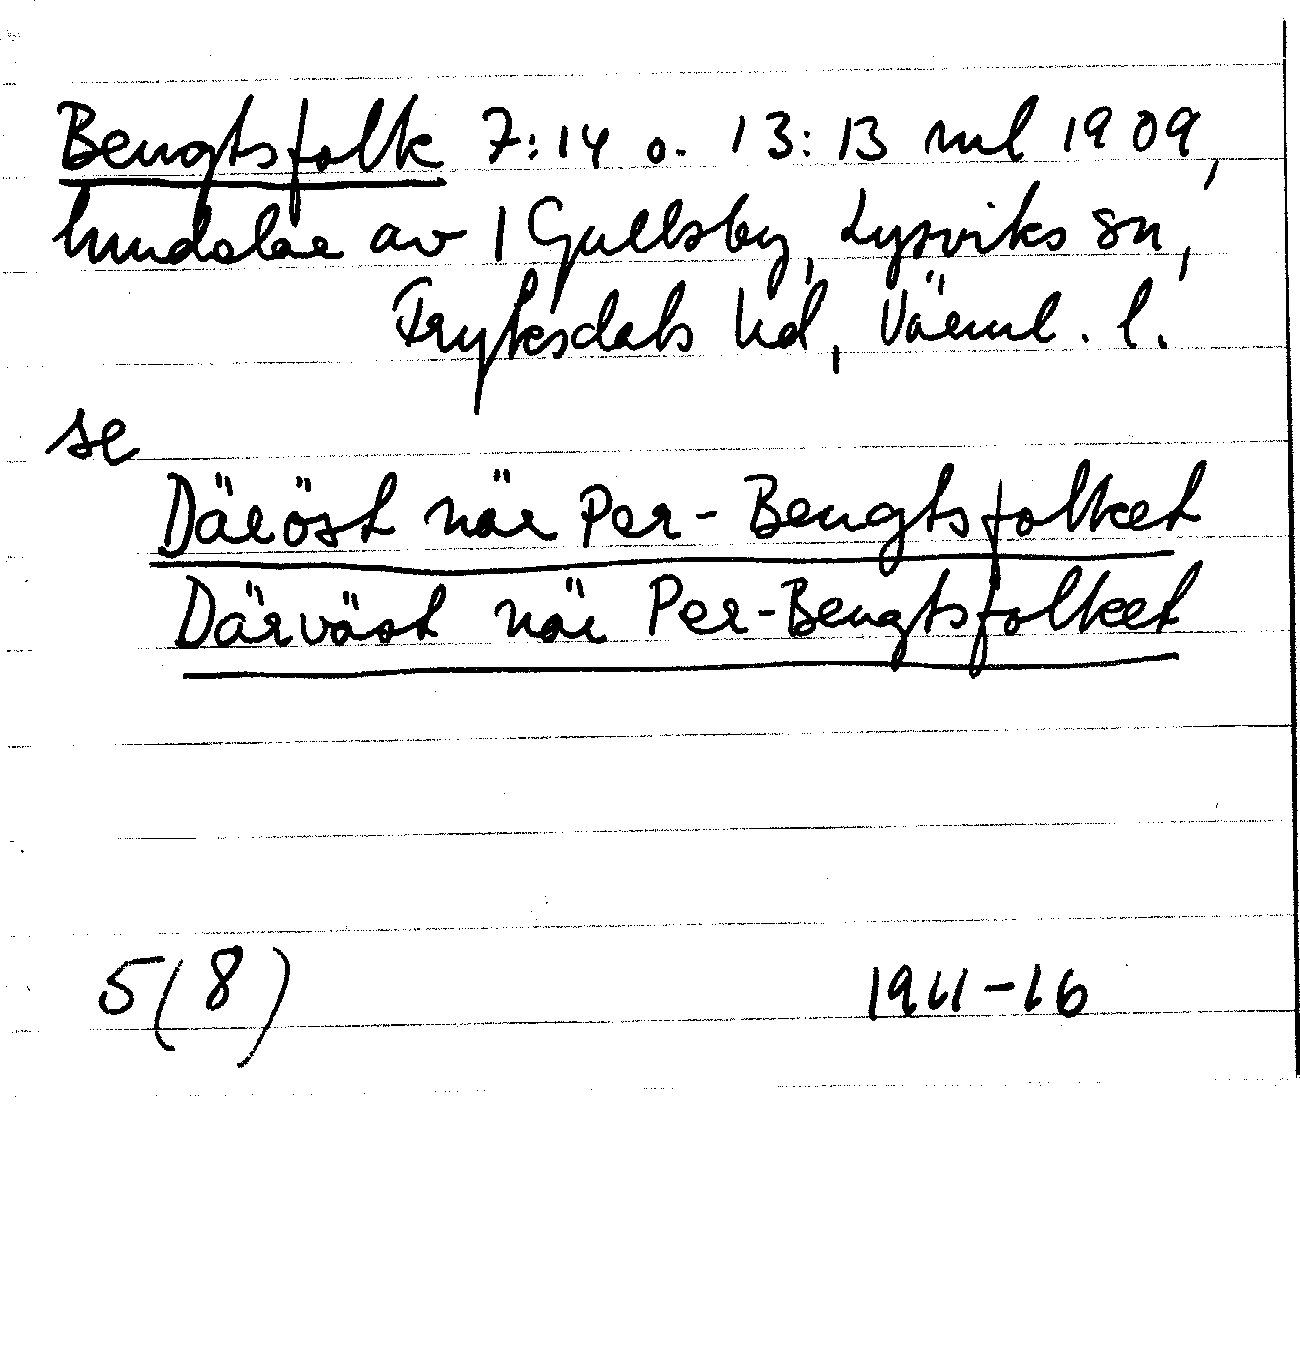 Bengtsfolk 7:14 o. 13:13 ml 1909,
hmdelar av 1 Gullsby, Lysviks sn,
Fryksdals hd, Värml. l.
se
Däröst när Per-Bengtsfolket
Därväst när Per-Bengtsfolket
5(8) 1911-16